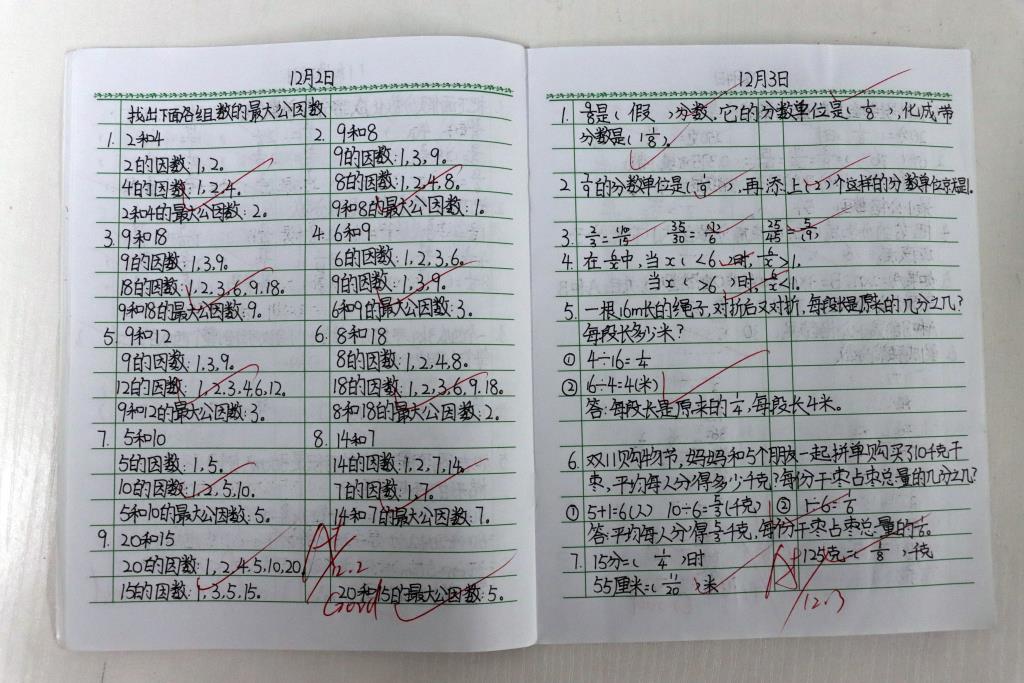 12月2日
找出下面各组数的最大公因数
1. 2和4
2的因数:1,2。
4的因数:1,2,4。
2和4的最大公因数:2。
2. 9和8
9的因数:1,3,9。
8的因数:1,2,4,8。
9和8的最大公因数:1。
3. 9和18
9的因数:1,3,9。
18的因数:1,2,3,6,9,18。
9和18的最大公因数:9。
4. 6和9
6的因数:1,2,3,6。
9的因数:1,3,9。
6和9的最大公因数:3。
5. 9和12
9的因数:1,3,9。
12的因数:1,2,3,4,6,12。
9和12的最大公因数:3。
6. 8和18
8的因数:1,2,4,8。
18的因数:1,2,3,6,9,18。
8和18的最大公因数:2。
7. 5和10
5的因数:1,5。
10的因数:1,2,5,10。
5和10的最大公因数:5。
8. 14和7
14的因数:1,2,7,14。
7的因数:1,7。
14和7的最大公因数:7。
9. 20和15
20的因数:1,2,4,5,10,20。
15的因数:1,3,5,15。
20和15的最大公因数:5。
A+
12.2
Good
12月3日
1. 9/8是(假)分数,它的分数单位是(1/8),化成带
分数是(1 1/8)。
2. 2/9的分数单位是(1/9),再添上(2)个这样的分数单位就是1。
3. 2/3=(10)/15 35/30=(7)/6 25/45=5/(9)
4. 在6/x中,当x(<6)时,6/x>1。
当x(>6)时,6/x<1。
5. 一根16m长的绳子,对折后又对折,每段长是原来的几分之几?
每段长多少米?
① 4÷16=1/4
② 16÷4=4(米)
答:每段长是原来的1/4,每段长4米。
6. 双11购物节,妈妈和5个朋友一起拼单购买了10千克干
枣,平均每人分得多少千克?每份干枣占枣总量的几分之几?
① 5+1=6(人) 10÷6=5/3(千克) ② 1÷6=1/6
答:平均每人分得5/3千克,每份干枣占枣总量的1/6。
7. 15分=(1/4)时 125克=(1/8)千克
55厘米=(11/20)米
A+
12.3